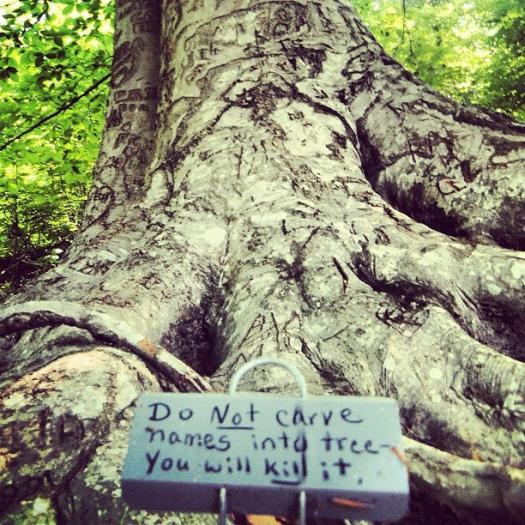 Do Not carve
names into tree-
You will kill it.